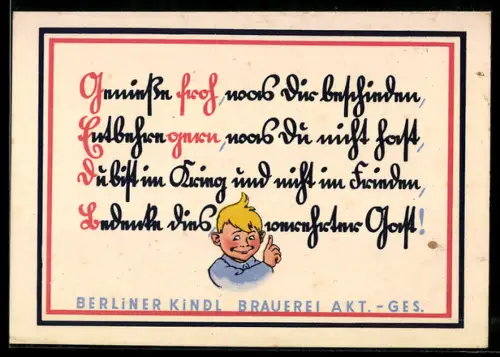 Genieße froh, was Dir beschieden,
Entbehre gern, was Du nicht hast,
Du bist im Krieg und nicht im Frieden,
Bedenke dies verehrter Gast!
BERLiNER KiNDL BRAUEREI AKT.-GES.